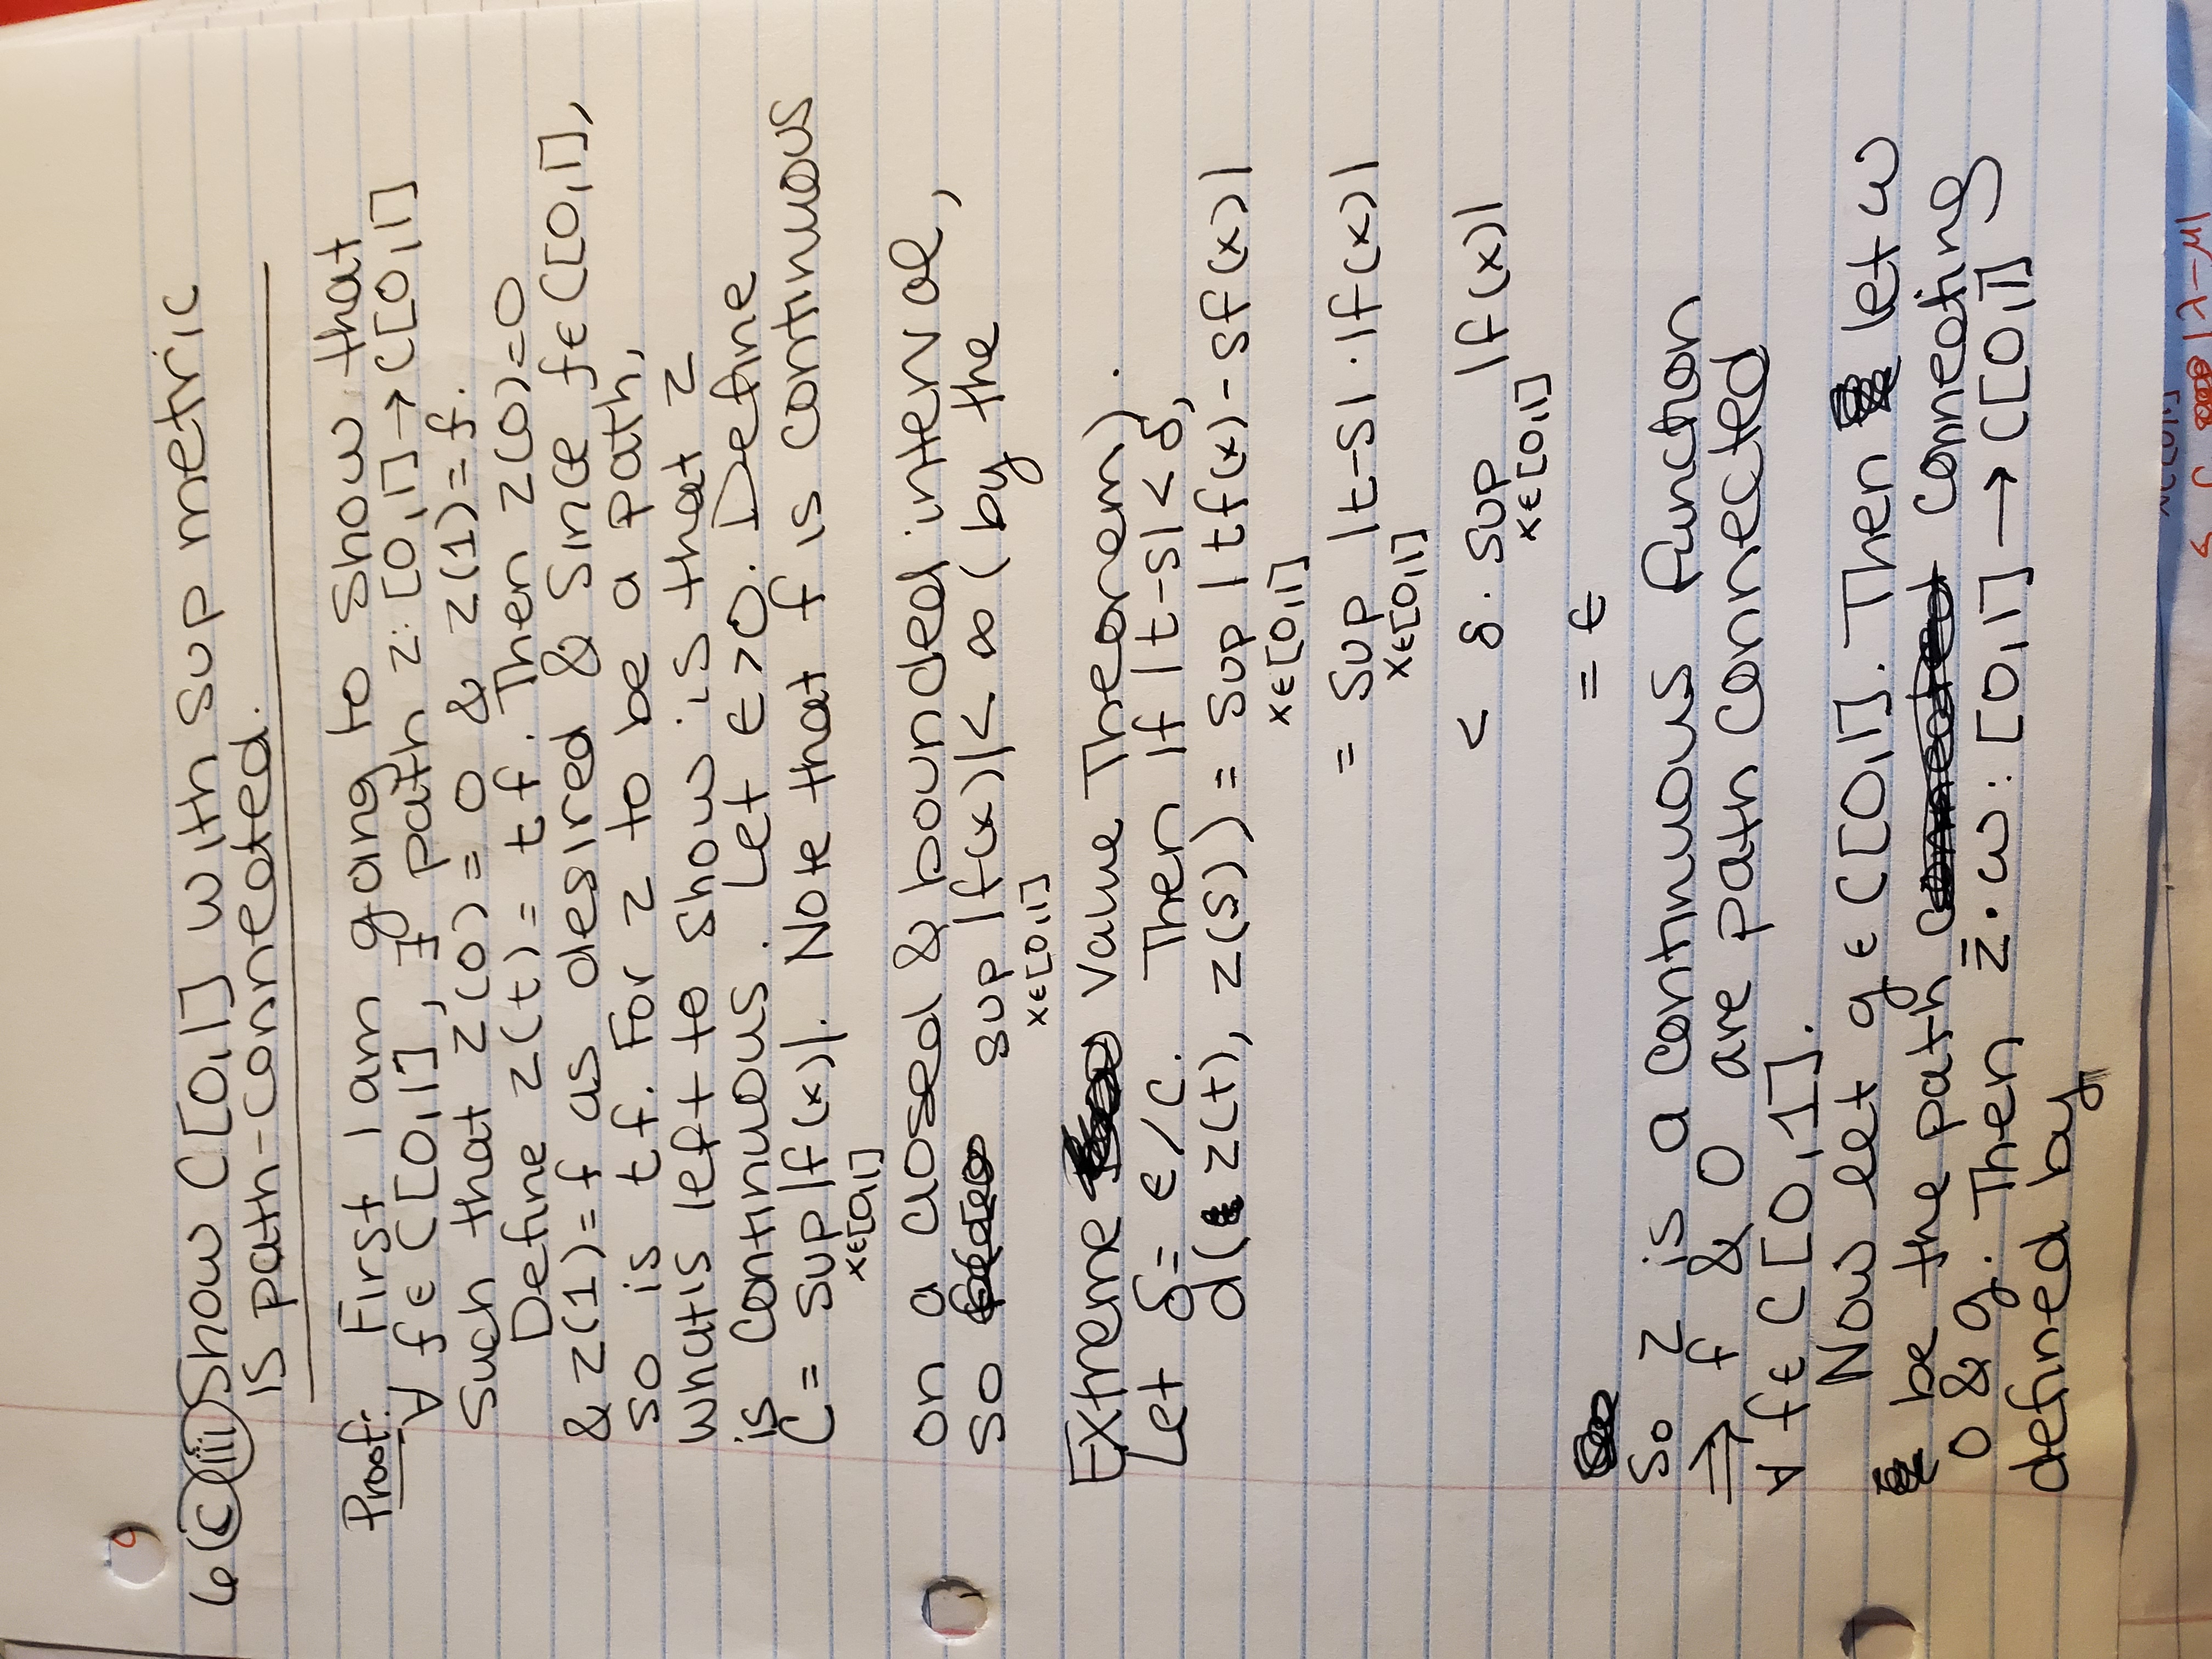 6 (c) (iii) Show C[0,1] with sup metric
is path-connected.
Proof: First I am going to show that
∀ f ∈ C[0,1], ∃ path z: [0,1] → C[0,1]
Such that z(0) = 0 & z(1) = f.
Define z(t) = tf. Then z(0)=0
& z(1) = f as desired & Since f ∈ C[0,1],
so is tf. For z to be a path,
what is left to show is that z
is continuous. Let ε>0. Define
C = sup |f(x)|. Note that f is continuous
x∈[0,1]
on a closed & bounded interval,
so sup |f(x)| < ∞ (by the
x∈[0,1]
Extreme Value Theorem).
Let δ = ε/C. Then if |t-s| < δ,
d(z(t), z(s)) = sup |tf(x) - sf(x)|
x∈[0,1]
= sup |t-s| · |f(x)|
x∈[0,1]
< δ · sup |f(x)|
x∈[0,1]
= ε
So z is a continuous function
⇒ f & 0 are path connected
∀ f ∈ C[0,1].
Now let g ∈ C[0,1]. Then let ω
be the path connecting
0 & g. Then z̄ · ω : [0,1] → C[0,1]
defined by